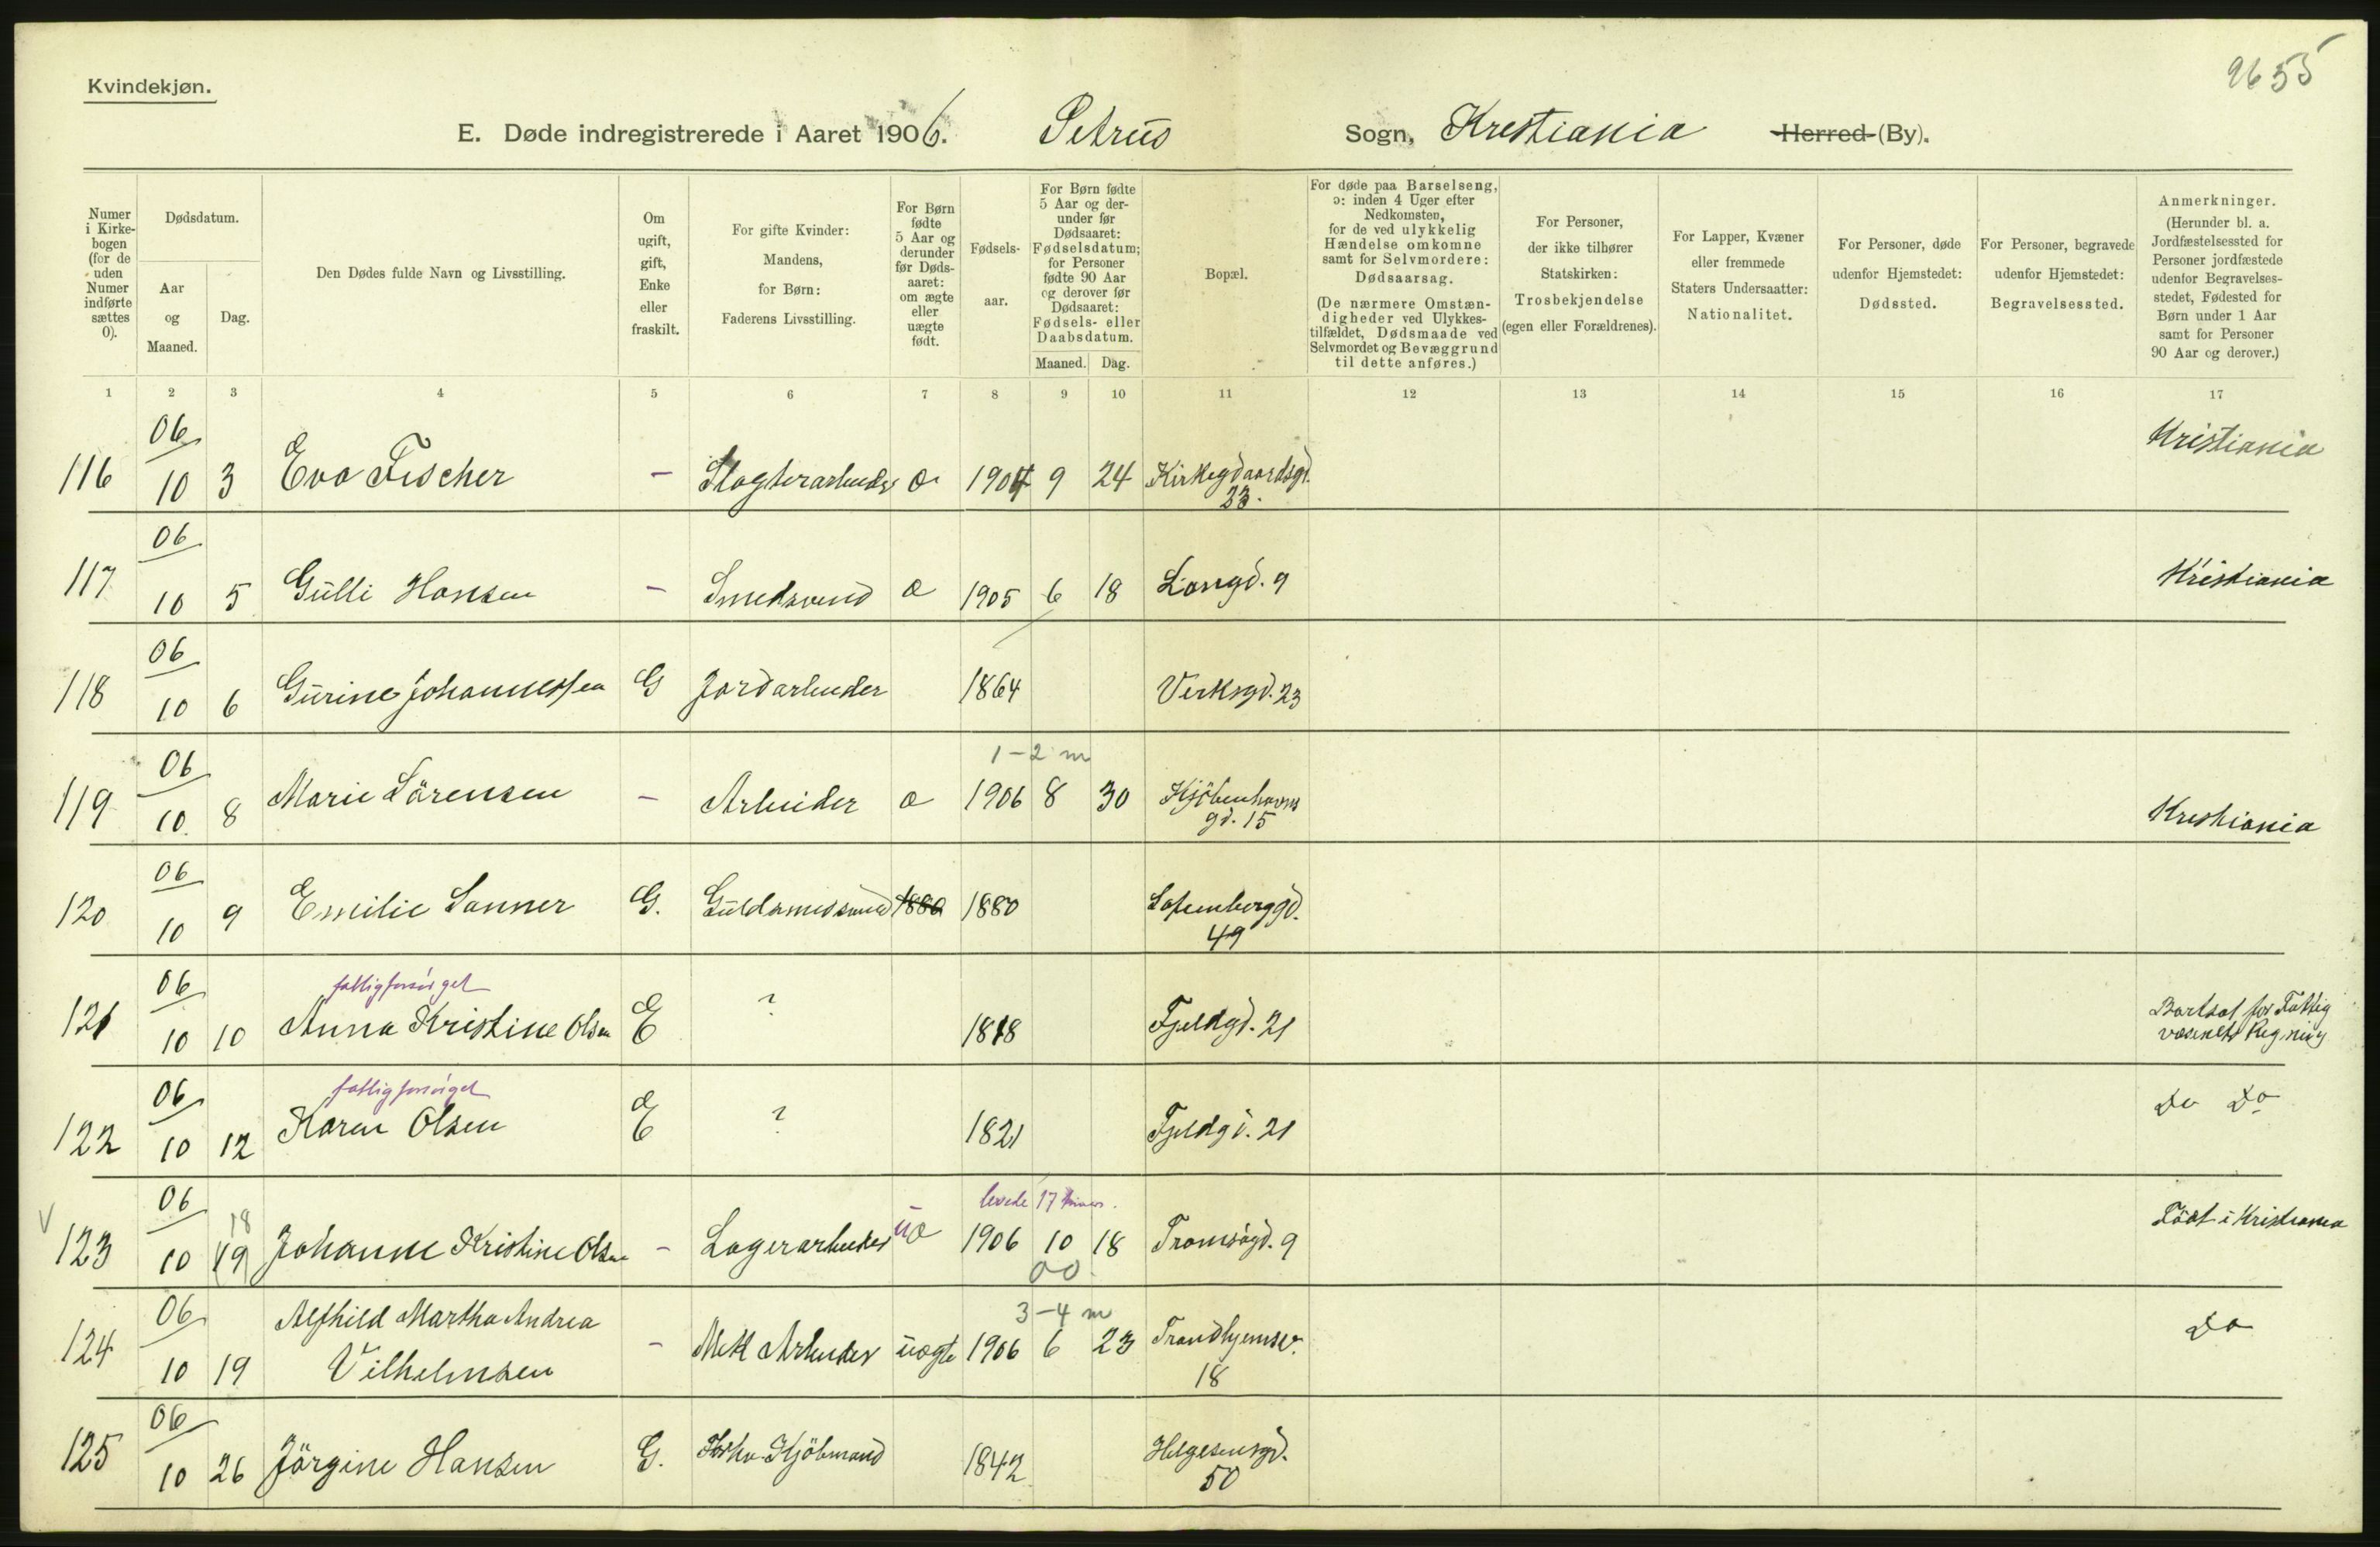 9655
Kvindekjøn.
E. Døde indregistrerede i Aaret 1906. Petrus Sogn, Krestiania Herred (By).
Numer i Kirkebogen (for de uden Numer indførte sættes 0).
Dødsdatum.
Aar og Maaned.
Dag.
Den Dødes fulde Navn og Livsstilling.
Om ugift, gift, Enke eller fraskilt.
For gifte Kvinder: Mandens, for Børn: Faderens Livsstilling.
For Børn fødte 5 Aar og derunder før Dødsaaret: om ægte eller uægte født.
Fødselsaar.
For Børn fødte 5 Aar og derunder før Dødsaaret: Fødselsdatum; for Personer fødte 90 Aar og derover før Dødsaaret: Fødsels- eller Daabsdatum.
Maaned. Dag.
Bopæl.
For døde paa Barselseng, ɔ: inden 4 Uger efter Nedkomsten, for de ved ulykkelig Hændelse omkomne samt for Selvmordere: Dødsaarsag.
(De nærmere Omstændigheder ved Ulykkestilfældet, Dødsmaade ved Selvmordet og Bevæggrund til dette anføres.)
For Personer, der ikke tilhører Statskirken: Trosbekjendelse (egen eller Forældrenes).
For Lapper, Kvæner eller fremmede Staters Undersaatter: Nationalitet.
For Personer, døde udenfor Hjemstedet: Dødssted.
For Personer, begravede udenfor Hjemstedet: Begravelsessted.
Anmerkninger.
(Herunder bl. a. Jordfæstelsessted for Personer jordfæstede udenfor Begravelsesstedet, Fødested for Børn under 1 Aar samt for Personer 90 Aar og derover.)
1 2 3 4 5 6 7 8 9 10 11 12 13 14 15 16 17
06 Kristiania
116 10 3 Eva Fischer - Slagterarbeider a 1904 9 24 Kirkegdaardsgd.
23.
06
117 10 5 Gulli Hansen - Smedsvend a 1905 6 18 Langd. 9 Kristiania
06
118 10 6 Gurine Johannessen G Jordarbeider 1864 Verksgd. 23
06 1-2 m
119 10 8 Marie Sörensen - Arbeider a 1906 8 30 Kjöbenhavns
gd. 15 Krestiania
06
120 10 9 Emilie Sanner G. Guldsmedsvend 1880 1880 Sofienberggd.
49
06 fattigforsörget
121 10 10 Anna Kristine Olsen E ? 1818 Fjeldgd. 21 Bortsat for Fattig
væsenets Regning
06 fattigforsörget
122 10 12 Karen Olsen E ? 1821 Fjeldgd. 21 Do Do
06 18 levede 17 timer.
V 123 10 19 Johanne Kristine Olsen - Lagerarbeider uæ 1906 10 18 Tromsögd. 9 Födt i Kristiania
00
06 Alfhild Martha Andrea 3-4 m
124 10 19 Vilhelmsen - Mek Arbeider uægte 1906 6 23 Trondhjemsv.
18 Do
06
125 10 26 Jörgine Hansen G. Kjöbmand 1842 Helgesensgd.
50